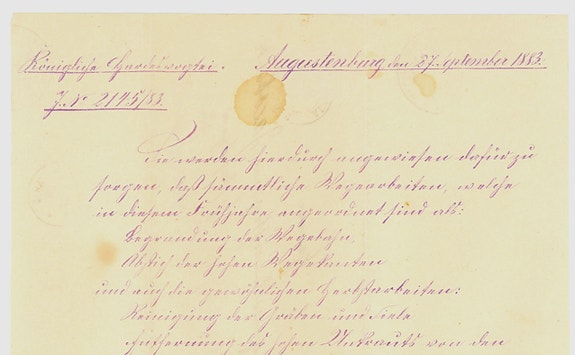 Königliche Hardesvogtei. Augustenburg den 27. September 1883.
J. Nr 2145/83.
Sie werden hierdurch angewiesen dafür zu
sorgen, daß sämmtliche Wegearbeiten, welche
in diesem Frühjahre angeordnet sind als:
Begrandung der Wegebahn,
Abstich der hohen Wegekanten
und auch die gewöhnlichen Herbstarbeiten:
Reinigung der Gräben und Siele
Entfernung des hohen Unkrauts von den